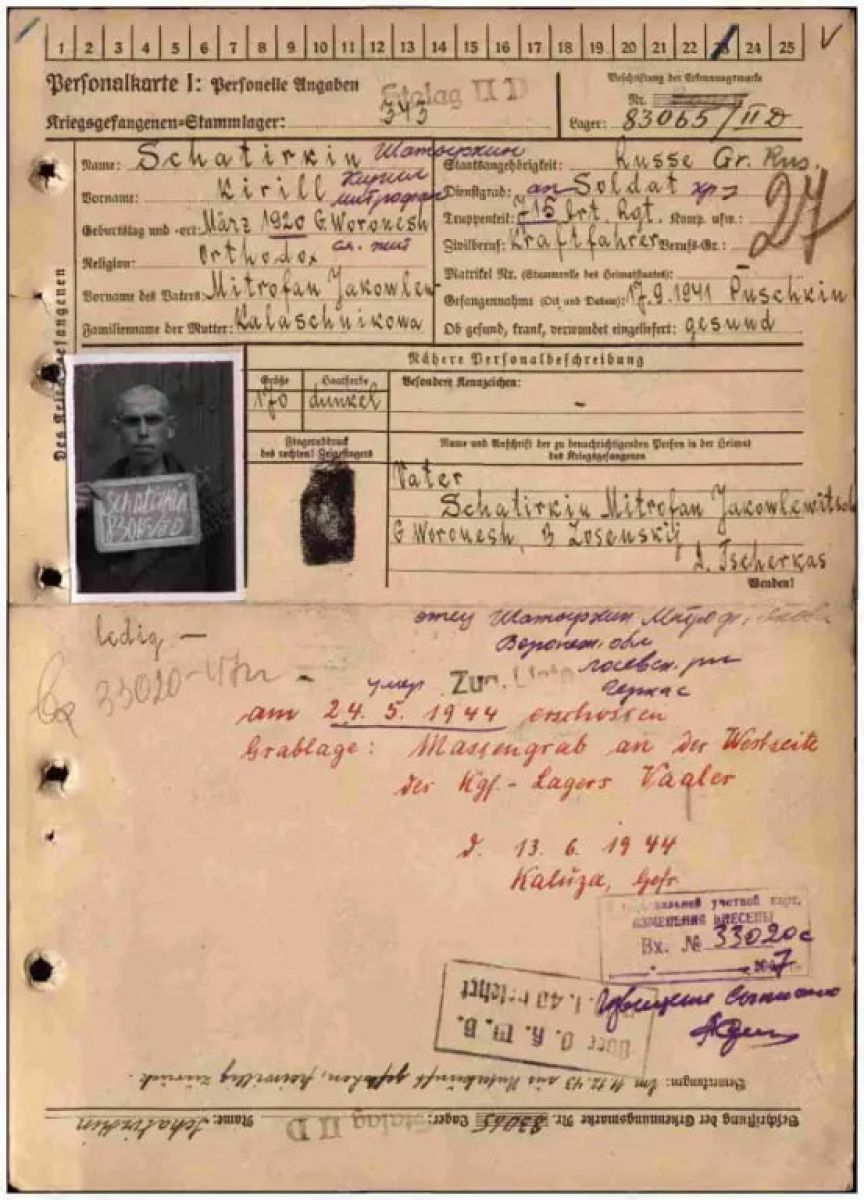 1 2 3 4 5 6 7 8 9 10 11 12 13 14 15 16 17 18 19 20 21 22 23 24 25
Personalkarte I: Personelle Angaben
Stalag II D
Beschriftung der Erkennungsmarke
Nr.
Kriegsgefangenen-Stammlager:
Lager: 83065/II D
Name: Schatirkin Шатыркин
Staatsangehörigkeit: Russe Gr. Rus.
Vorname: Kirill Кирилл
Dienstgrad: Soldat
27
Truppenteil: Art. Rgt. Komp. usw.:
Geburtstag und -ort: März 1920 G. Woronesh
Zivilberuf: Kraftfahrer Berufs-Gr.:
Religion: Orthodox
Matrikel Nr. (Stammrolle des Heimatstaates):
Vorname des Vaters: Mitrofan Jakowlew
Gefangennahme (Ort und Datum): 17.9.1941 Puschkin
Familienname der Mutter: Kalaschnikowa
Ob gesund, krank, verwundet eingeliefert: gesund
Nähere Personalbeschreibung
Größe
Haarfarbe
Besondere Kennzeichen:
170
dunkel
-
Fingerabdruck
des rechten! Zeigefingers
Name und Anschrift der zu benachrichtigenden Person in der Heimat
des Kriegsgefangenen
Schatirkin
Vater
Schatirkin Mitrofan Jakowlewitsch
G Woronesh,
D. Tscherkas
Wenden!
ledig —
отец Шатыркин
Воронеж. обл
33020
умер
Zur
Черкас
am 24. 5. 1944 erschossen
Grablage: Massengrab an der Westseite
des Kgf.-Lagers
d. 13. 6. 1944
Kaluza, Gefr.
учетной карт.
ИЗМЕНЕНИЯ ВНЕСЕНЫ
Вх. № 33020с
Извещение
O. K. W. B.
Bemerkungen: Am 11.12.43 aus geflohen, freiwillig zurück.
Beschriftung der Erkennungsmarke Nr. 83065 Lager: Stalag II D Name: Schatirkin